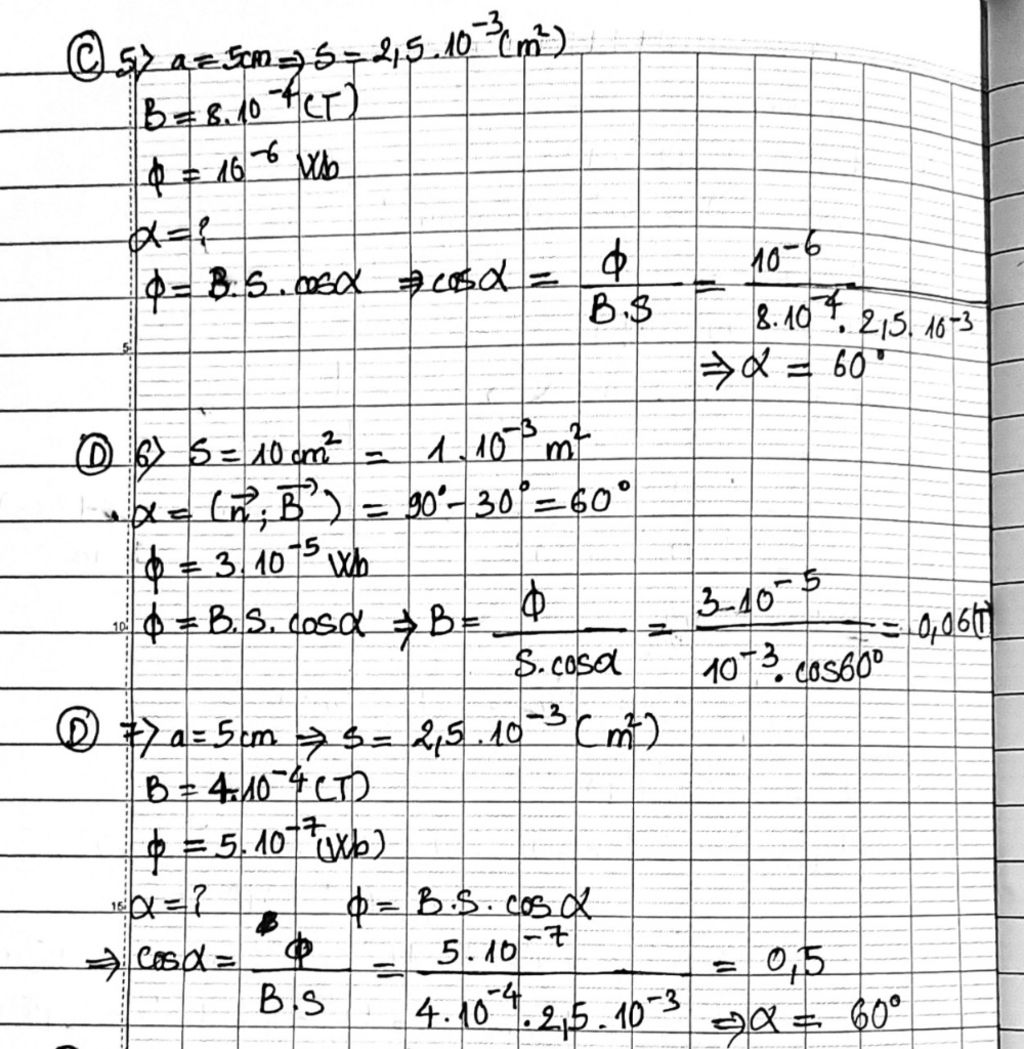 Ⓒ 5> a = 5cm ⇒ S = 2,5.10⁻³ (m²)
B = 8.10⁻⁴ (T)
ϕ = 10⁻⁶ Wb
α = ?
ϕ = B.S.cosα ⇒ cosα = ϕ / B.S = 10⁻⁶ / 8.10⁻⁴.2,5.10⁻³
5
⇒ α = 60°
Ⓓ 6> S = 10 cm² = 1.10⁻³ m²
α = (n⃗; B⃗) = 90° - 30° = 60°
ϕ = 3.10⁻⁵ Wb
10 ϕ = B.S.cosα ⇒ B = ϕ / S.cosα = 3.10⁻⁵ / 10⁻³.cos60° = 0,06(T)
Ⓓ 7> a = 5cm ⇒ S = 2,5.10⁻³ (m²)
B = 4.10⁻⁴ (T)
ϕ = 5.10⁻⁷ (Wb)
15 α = ? ϕ = B.S.cosα
⇒ cosα = ϕ / B.S = 5.10⁻⁷ / 4.10⁻⁴.2,5.10⁻³ = 0,5
⇒ α = 60°